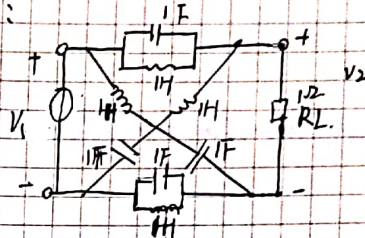 :
1F
+
+
1H
V₂
1H
1H
1Ω
RL.
V₁
1F
1F
1F
-
-
1H